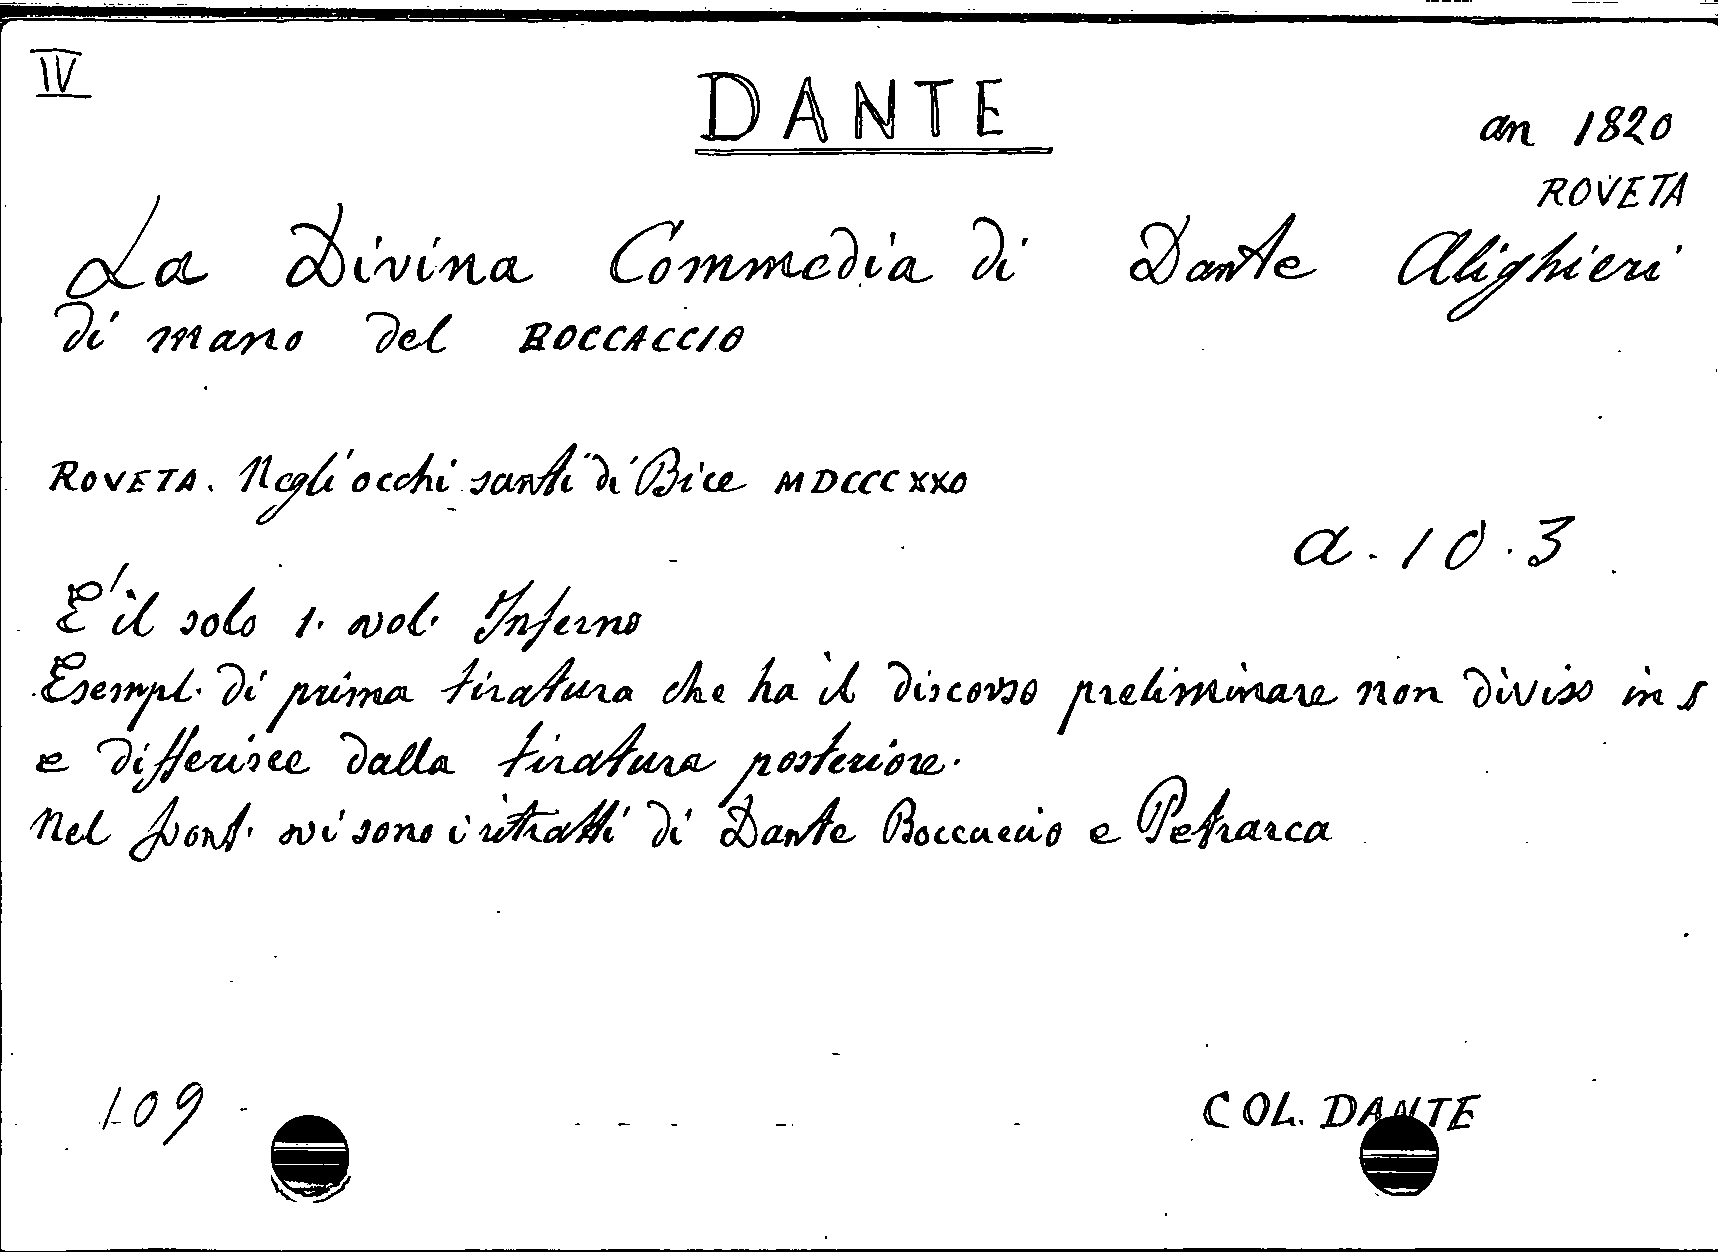 IV
DANTE
an 1820
ROVETA
La Divina Commedia di Dante Alighieri
di mano del BOCCACCIO
ROVETA. Negli occhi santi di Bice MDCCCXXO
a. 10. 3
E' il solo 1. vol. Inferno
Esempl. di prima tiratura che ha il discorso preliminare non diviso in 5
e differisce dalla tiratura posteriore.
Nel front. vi sono i ritratti di Dante Boccaccio e Petrarca
109
COL. DANTE